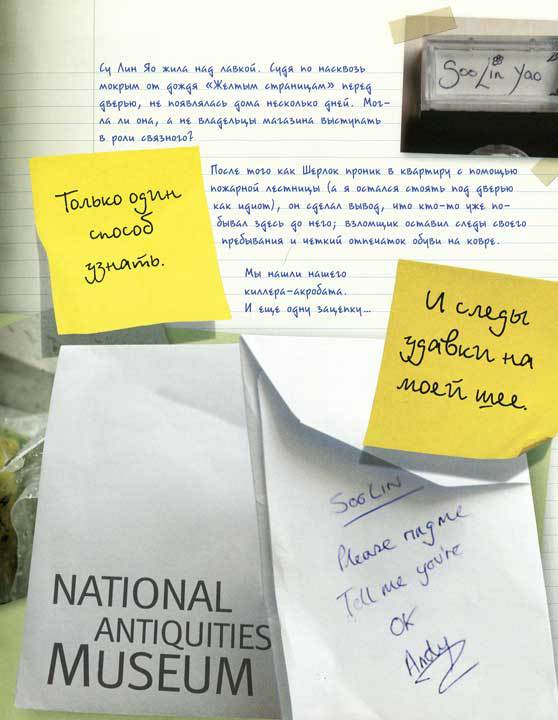 Су Лин Яо жила над лавкой. Судя по насквозь
мокрым от дождя «Желтым страницам» перед
дверью, не появлялась дома несколько дней. Мог-
ла ли она, а не владельцы магазина выступать
в роли связного?
SooLin Yao
Только один
способ
узнать.
После того как Шерлок проник в квартиру с помощью
пожарной лестницы (а я остался стоять под дверью
как идиот), он сделал вывод, что кто-то уже по-
бывал здесь до него; взломщик оставил следы своего
пребывания и четкий отпечаток обуви на ковре.
Мы нашли нашего
киллера-акробата.
И еще одну зацепку...
И следы
удавки на
моей шее.
NATIONAL
ANTIQUITIES
MUSEUM
SOOLIN
Please ring me
Tell me you're
OK
Andy